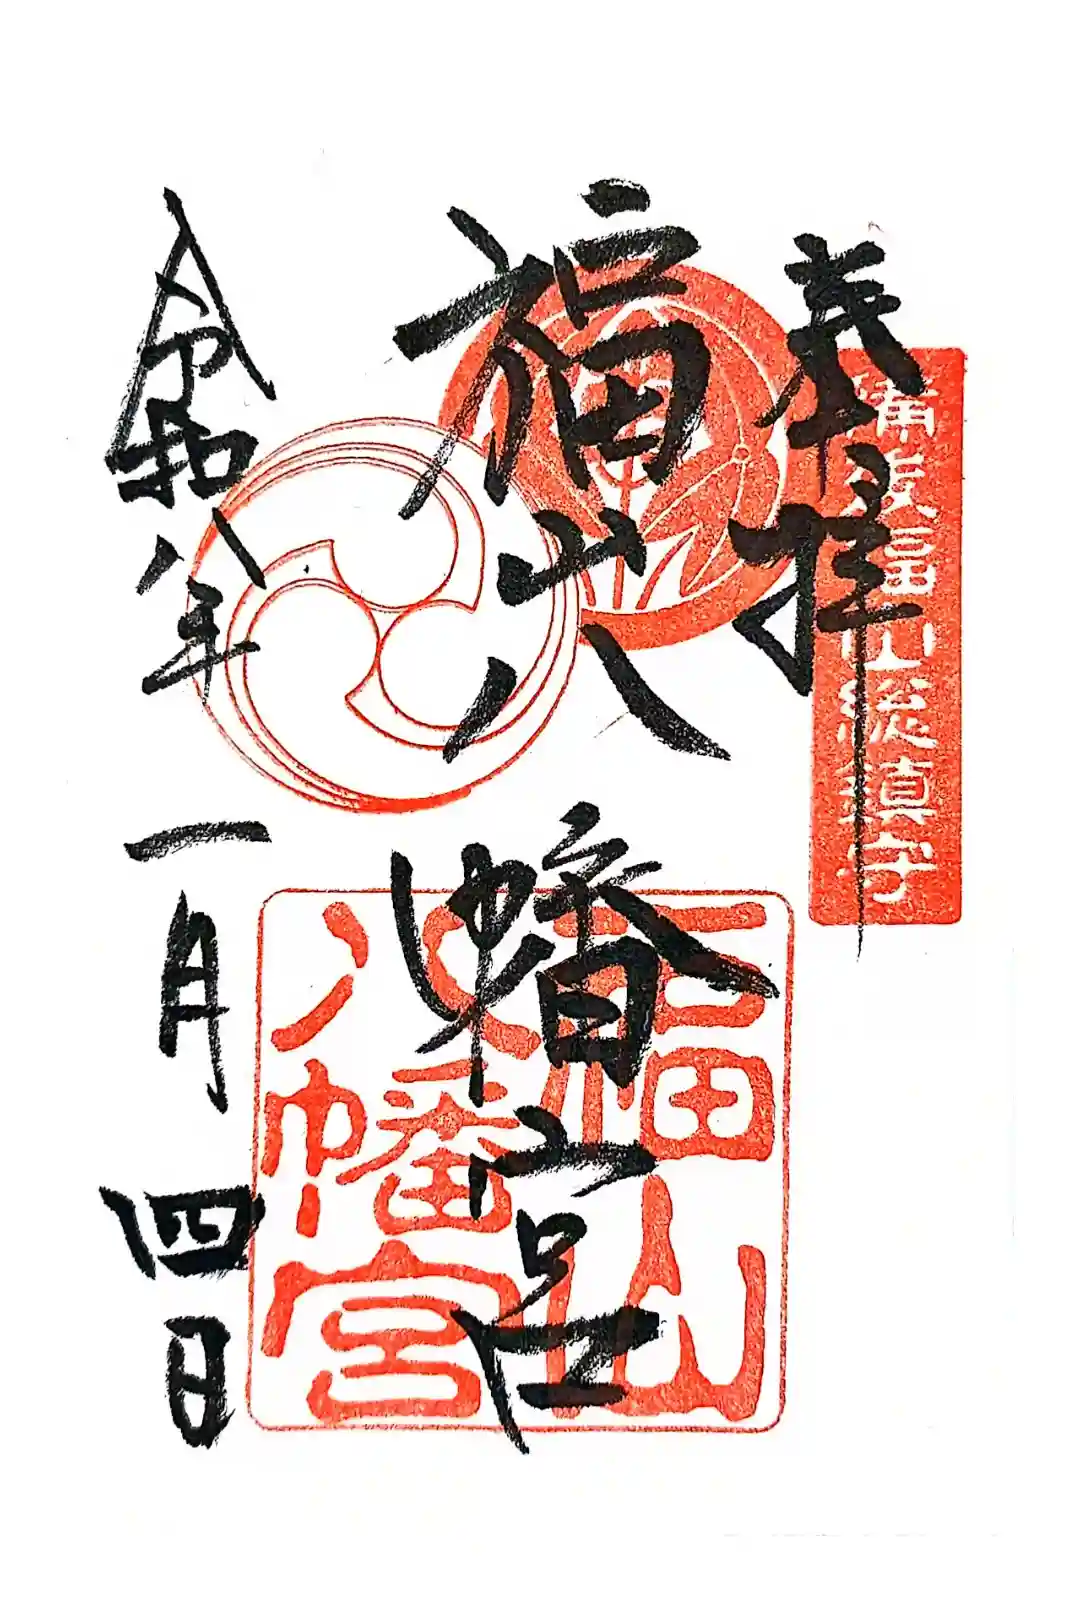 奉拝
備後福山総鎮守
福山八幡宮
福山
八幡宮
令和八年一月四日